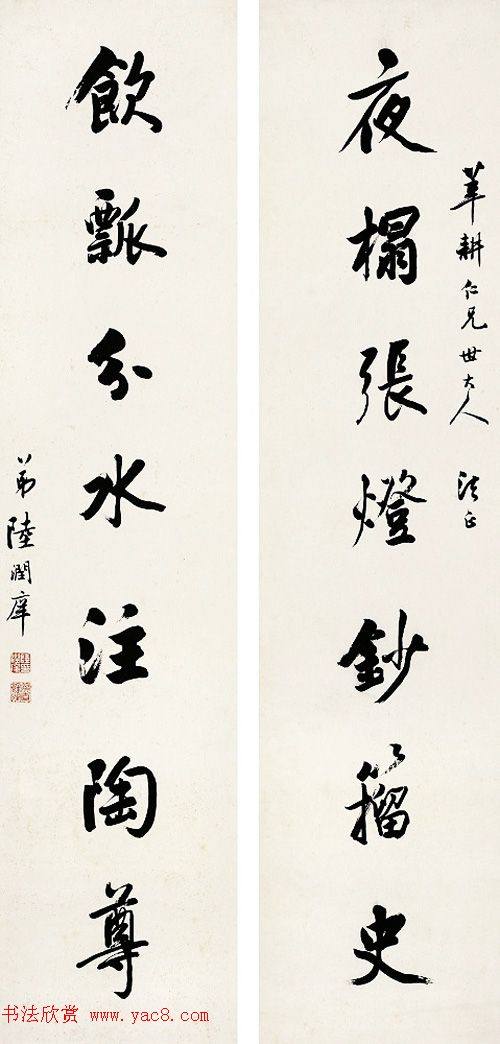 夜榻張燈鈔籀史
華耕仁兄世大人 法正
飲瓢分水注陶尊
弟陸潤庠
书法欣赏 www.yac8.com